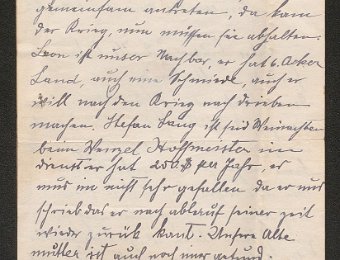 gemeinsam antreten, da kam
der Krieg, nun müssen sie abhalten.
Leon ist unser Nachbar, er hat 6 Acker
Land, auch eine Schmiede, auch er
will nach den Krieg nach drieben
machen. Stefan Lang ist seid Weinachten
beim Wenzel Hoffmeister im
dienst er hat 200 $ per Jahr, er
mus im nicht sehr gefallen da er mir
schrieb das er nach ablauf seiner zeit
wieder zurük komt. Unsere Alte
mutter ist auch noch nur gesund.